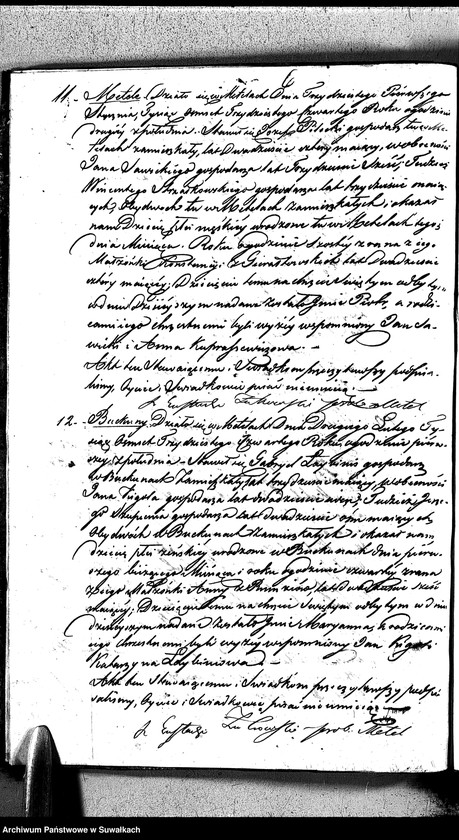 11. Metele. Działo się w Metelach Dnia Trzydziestego Pierwszego
Stycznia, Tysiąc Osmset Trzydziestego czwartego Roku o godzinie
drugiej z południa. Stawił się Józef Pilecki gospodarz tu w Me-
telach zamieszkały, lat Dwadzieścia cztery mający, w obecności
Jana Sawickiego gospodarza lat Trzydzieści Sześć, tudzież
Wincentego gospodarza lat trzydzieści mają-
cych, Obydwoch tu w Metelach zamieszkałych, i okazał
nam Dziecię płci męskiej urodzone tu w Metelach tegoż
dnia Miesiąca i Roku o godzinie szostej z rana z iego
Małżonki Konstancyi z lat dwadzieścia
cztery maiącey; Dziecięciu temu na chrzcie świętym odbytym
w dniu dzisieyszym nadane zostało Imie Piotr, a rodzi-
cami iego chrzestnemi byli wyżey wspomniony Jan Sa-
wicki i Anna Kuprasiewiczowa. –
Akt ten Stawaiącemu i Świadkom przeczytawszy podpisa-
liśmy, Oyciec i Świadkowie pisać nieumieią. –
X Eustachi Żukowski prob. Metel
12. Buckuny. Działo się w Metelach Dnia Drugiego Lutego Ty-
siąc Osmset Trzydziestego Czwartego Roku, o godzinie pierw-
szey z południa. Stawił się Gabryel gospodarz
w Buckunach zamieszkały, lat trzydzieści maiący, w obecności
Jana gospodarza lat dwadzieścia tudzież Jerze-
go Stupienia gospodarza lat dwadzieścia ośm maiących
Obydwoch w Buckunach zamieszkałych i okazał nam
dziecię płci żeńskiey urodzone w Buckunach dnia pierw-
szego bieżącego Miesiąca i roku o godzinie czwartey z rana
z iego Małżonki Anny z lat dwadzieścia sześć
maiącey; Dziecięciu temu na chrzcie świętym odbytym w dniu
dzisieyszym nadane zostało Imie Maryanna, a rodzicami
iego chrzestnemi byli wyżey wspomniony Jan
Katarzyna
Akt ten Stawaiącemu i Świadkom przeczytawszy podpi-
saliśmy, Oyciec i Świadkowie pisać nieumieią.
X Eustachi Żukowski prob. Metel
Archiwum Państwowe w Suwałkach